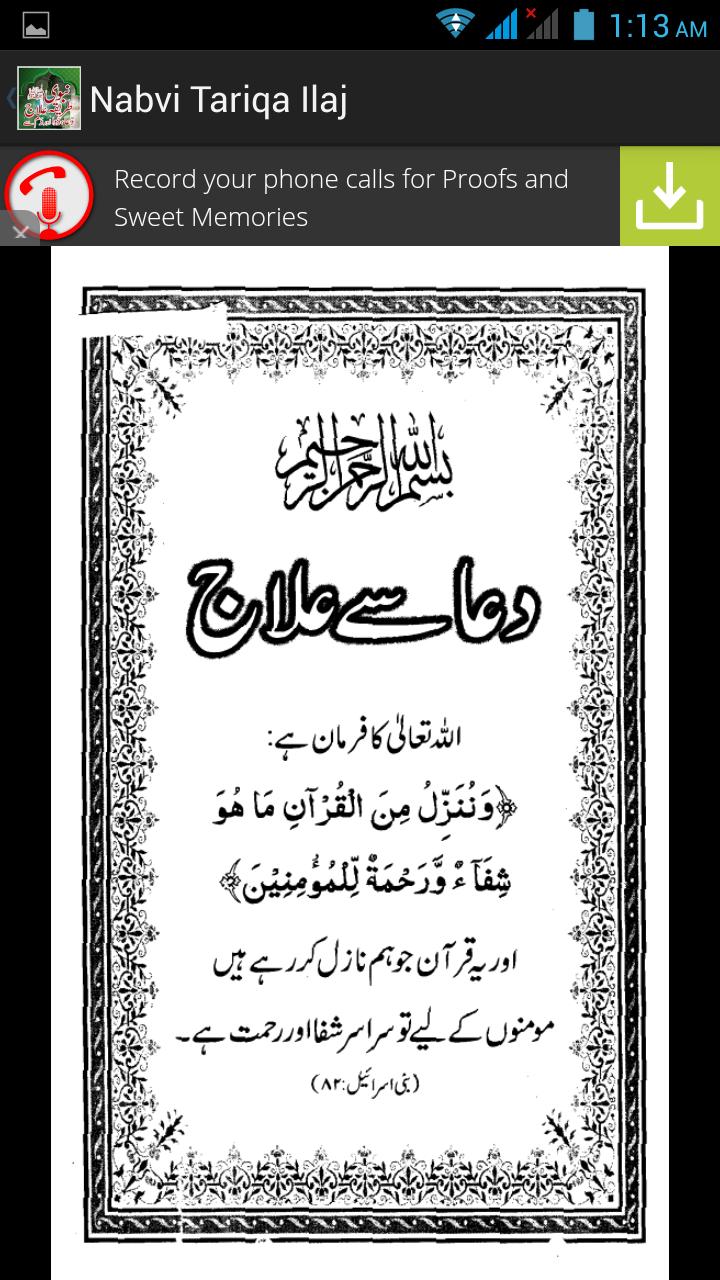 1:13 AM
Nabvi Tariqa Ilaj
Record your phone calls for Proofs and
Sweet Memories
بسم الله الرحمن الرحيم
دعا سے علاج
اللہ تعالیٰ کا فرمان ہے:
﴿وَنُنَزِّلُ مِنَ الْقُرْآنِ مَا هُوَ
شِفَآءٌ وَّرَحْمَةٌ لِّلْمُؤْمِنِيْنَ﴾
اور یہ قرآن جو ہم نازل کر رہے ہیں
مومنوں کے لیے تو سراسر شفا اور رحمت ہے۔
(بنی اسرائیل: ۸۲)